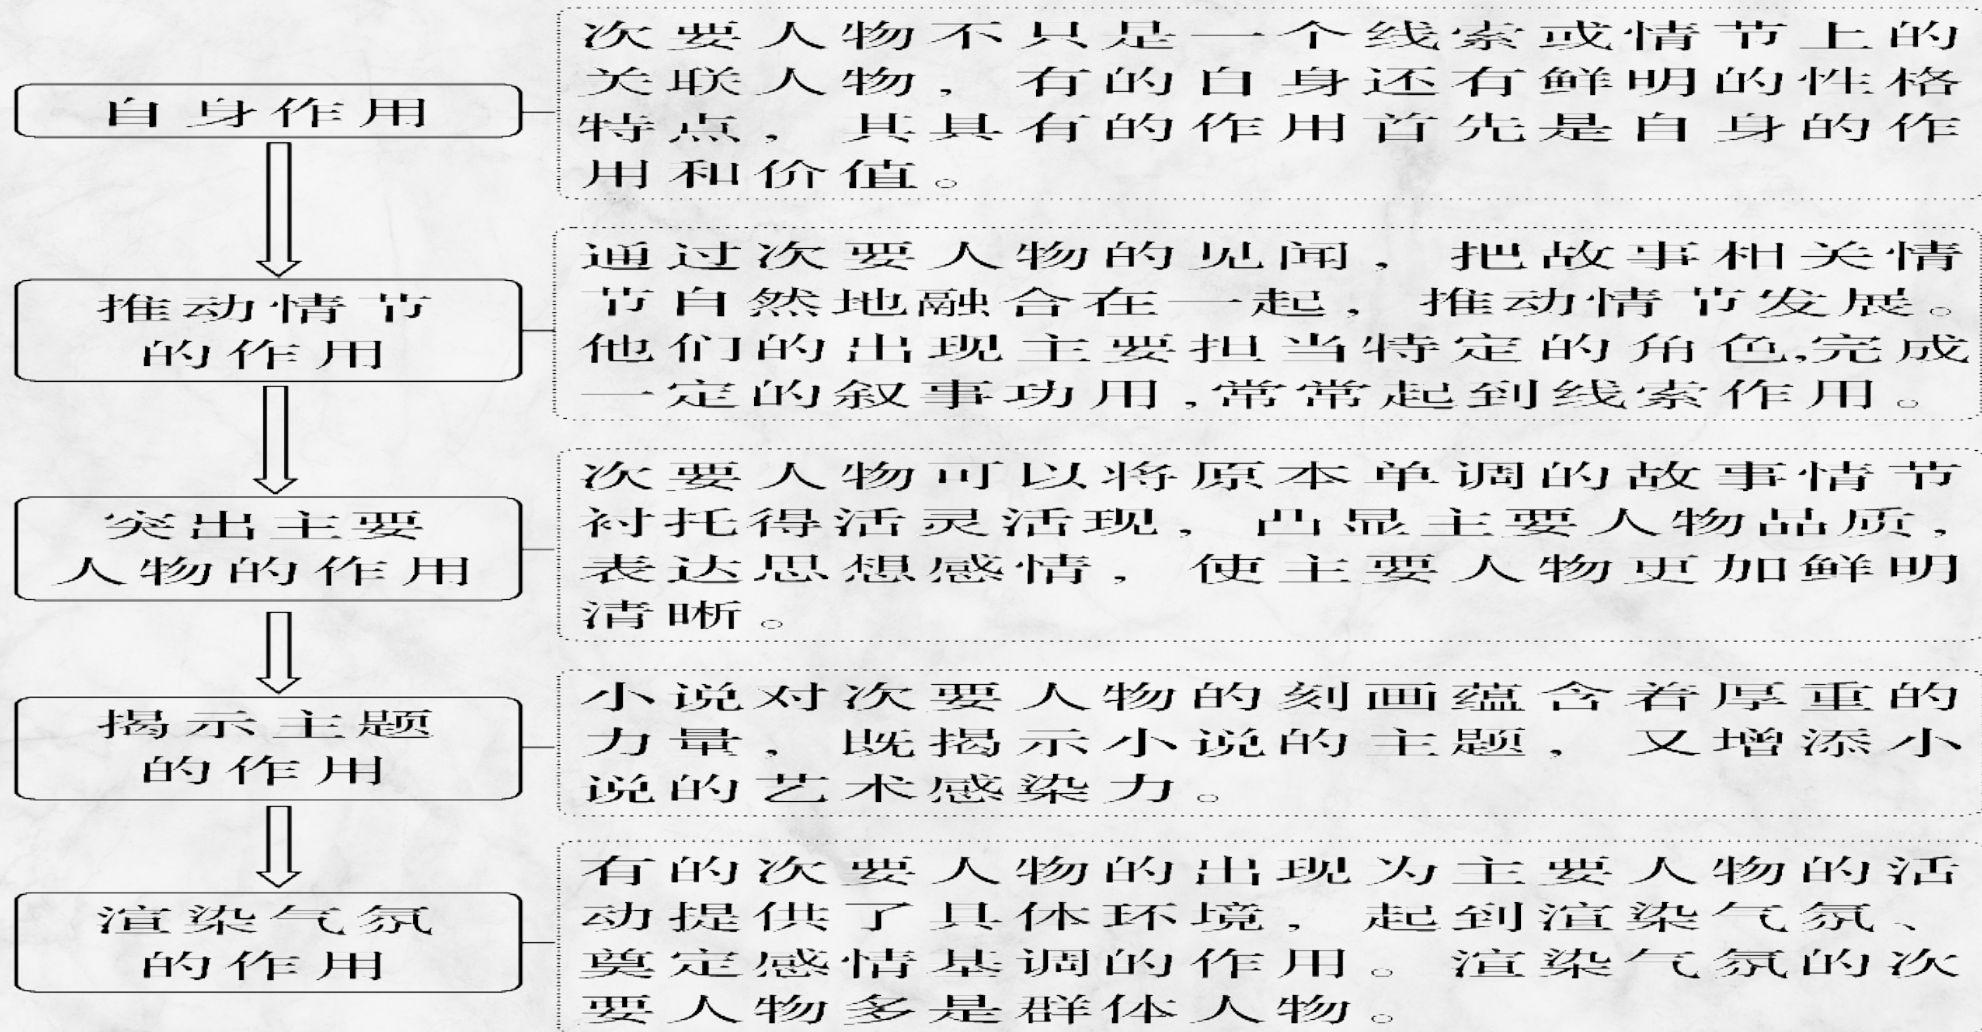 自身作用
次要人物不只是一个线索或情节上的
关联人物，有的自身还有鲜明的性格
特点，其具有的作用首先是自身的作
用和价值。
推动情节
的作用
通过次要人物的见闻，把故事相关情
节自然地融合在一起，推动情节发展。
他们的出现主要担当特定的角色,完成
一定的叙事功用,常常起到线索作用。
突出主要
人物的作用
次要人物可以将原本单调的故事情节
衬托得活灵活现，凸显主要人物品质，
表达思想感情，使主要人物更加鲜明
清晰。
揭示主题
的作用
小说对次要人物的刻画蕴含着厚重的
力量，既揭示小说的主题，又增添小
说的艺术感染力。
渲染气氛
的作用
有的次要人物的出现为主要人物的活
动提供了具体环境，起到渲染气氛、
奠定感情基调的作用。渲染气氛的次
要人物多是群体人物。